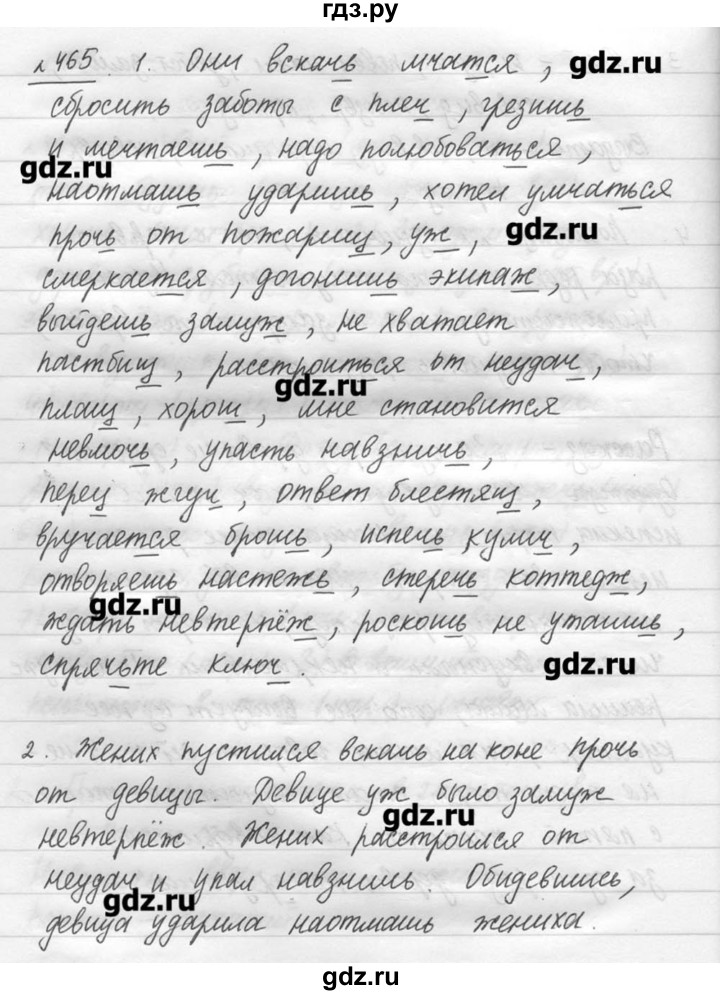 гдз.ру
№465. 1. Они вскачь мчатся, gdz.ru
сбросить заботы с плеч, грезишь
и мечтаешь, надо полюбоваться,
gdz.ru
наотмашь ударишь, хотел умчаться
прочь от пожарищ, уж, gdz.ru
смеркается, догонишь экипаж,
выйдешь замуж, не хватает
пастбищ, расстроиться от неудач,
gdz.ru
плащ, хорош, мне становится
невмочь, упасть навзничь,
перец жгуч, ответ блестящ,
вручается брошь, испечь кулич,
отворяешь настежь, стеречь коттедж,
gdz.ru
ждать невтерпёж, роскошь не утаишь,
спрячьте ключ. gdz.ru
2. Жених пустился вскачь на коне прочь
от девицы. Девице уж было замуж
gdz.ru
невтерпёж. Жених расстроился от
неудач и упал навзничь. Обидевшись,
gdz.ru
девица ударила наотмашь жениха.
gdz.ru